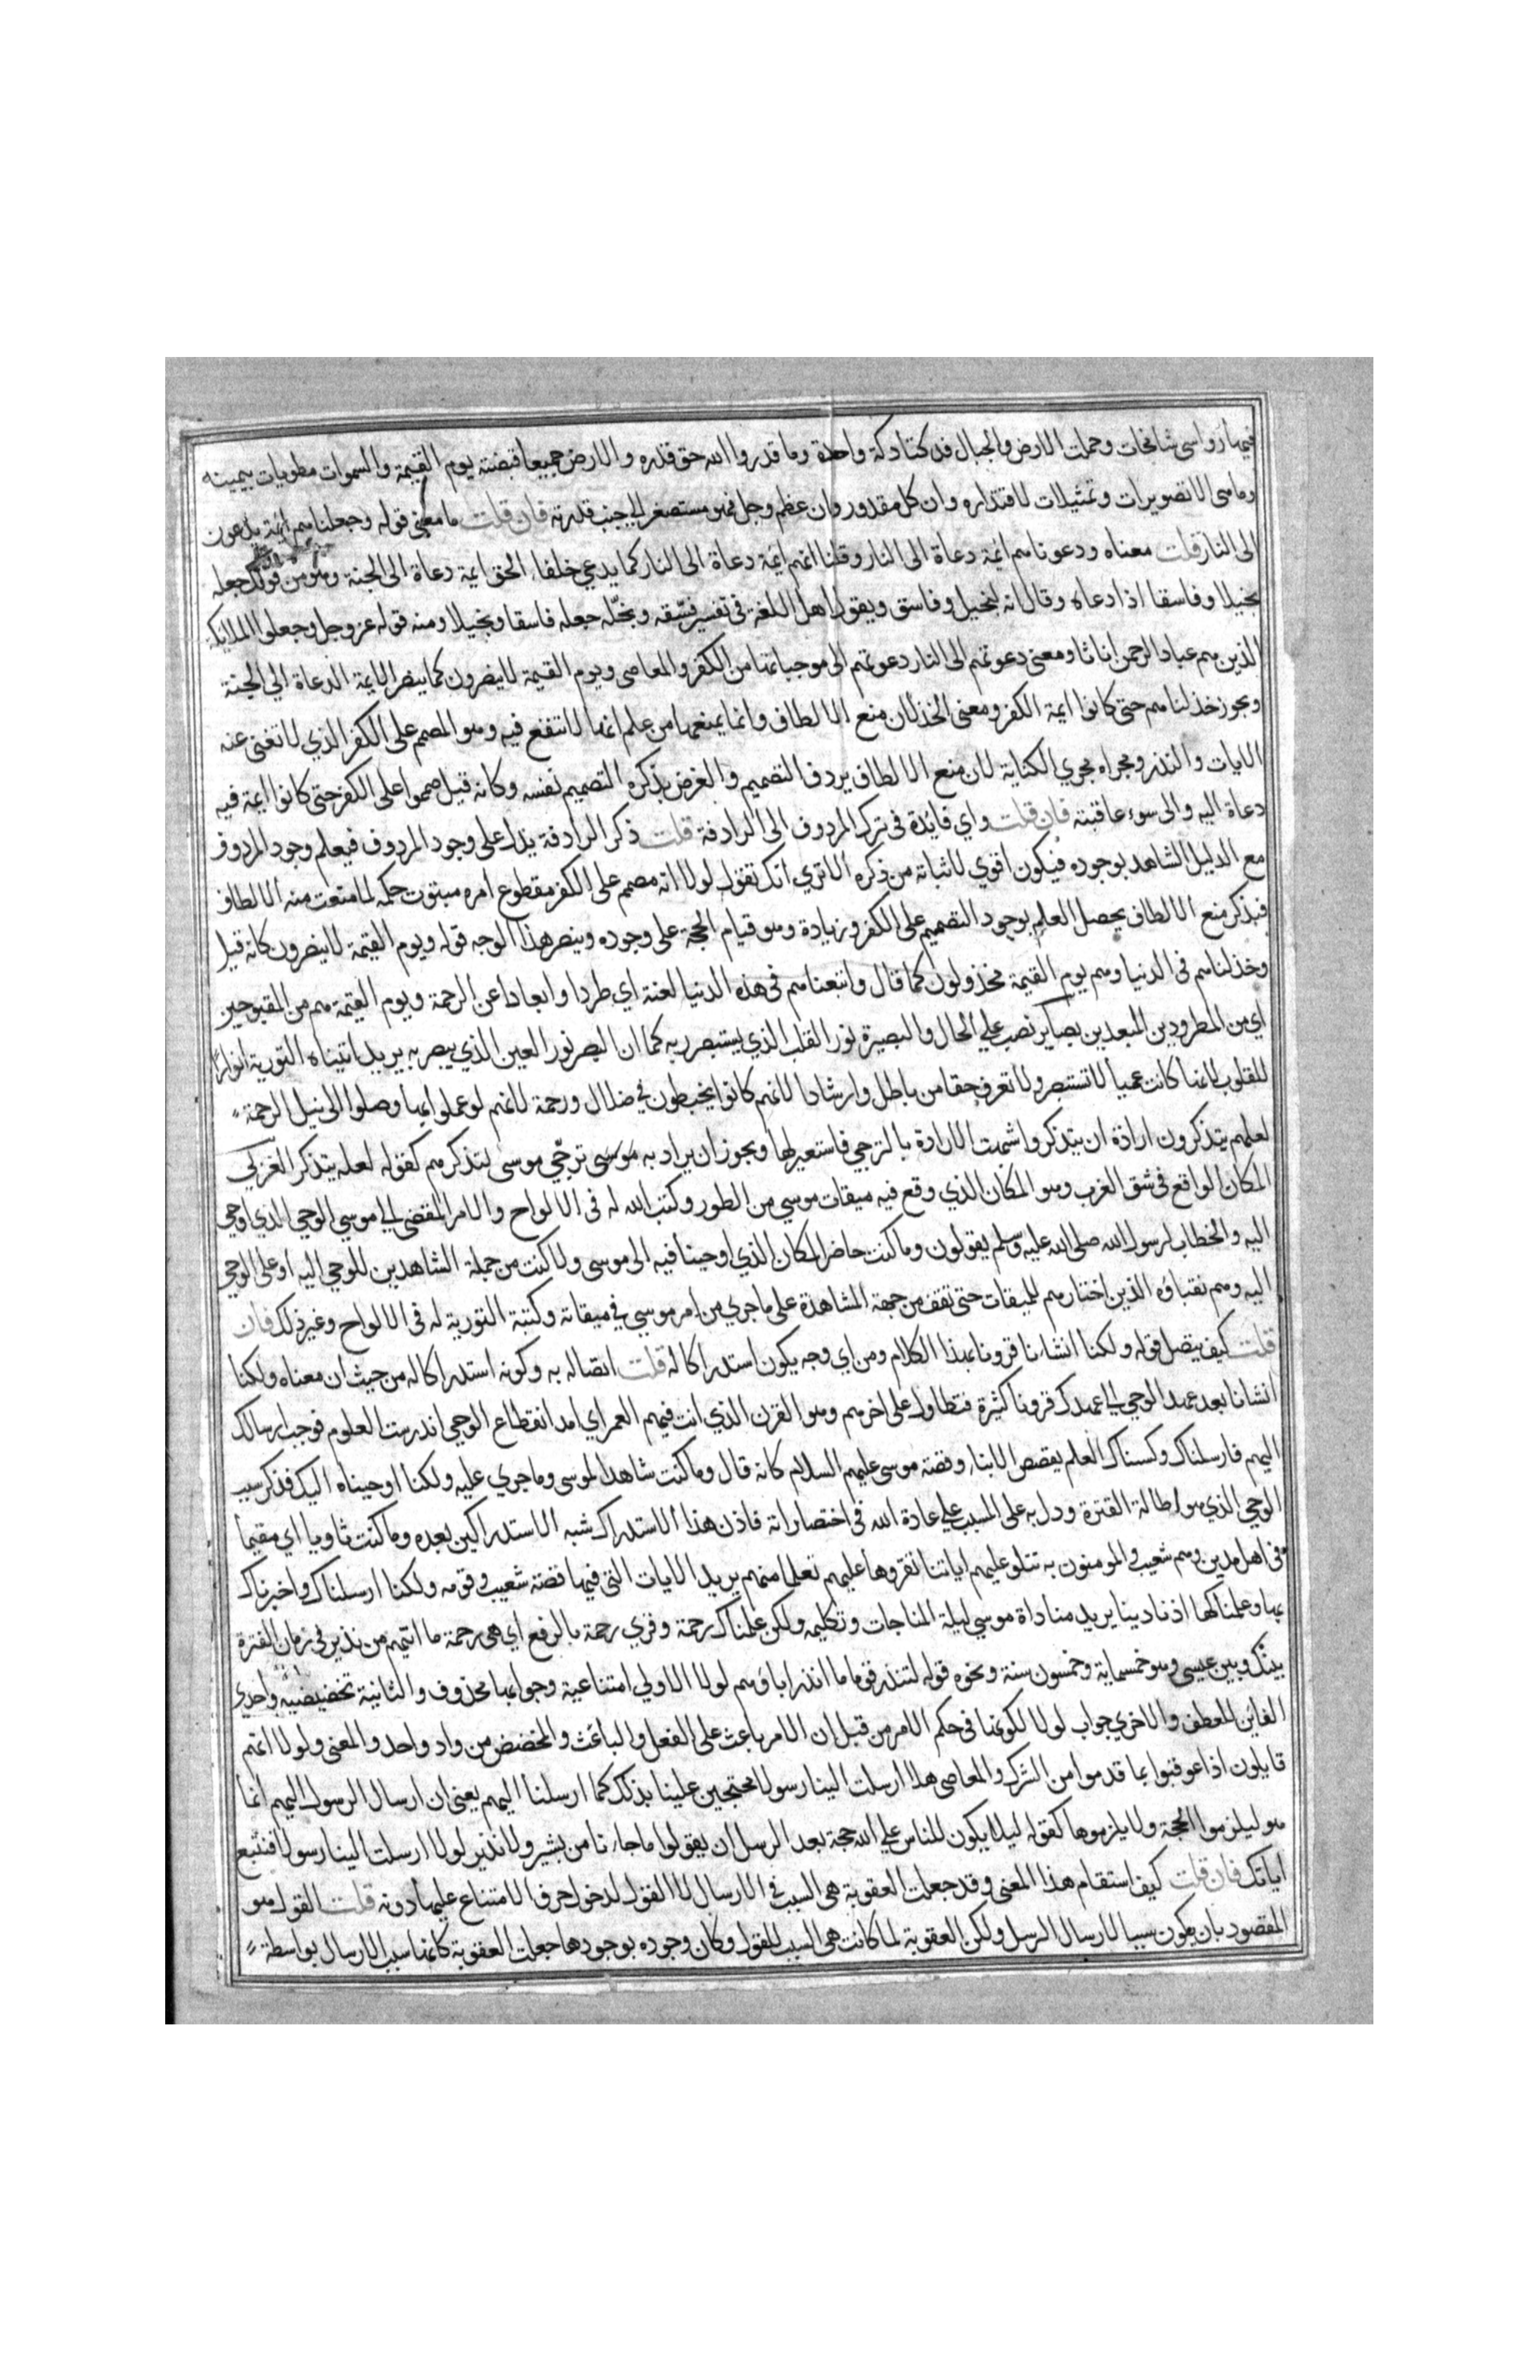 فيها رواسي شامخات وحملت الارض والجبال فدكتا دكة واحدة وما قدروا الله حق قدره والارض جميعا قبضته يوم القيمة والسموات مطويات بيمينه
وما هي الا تصويرات وتمثيلات لاقتداره وان كل مقدور وان عظم وجل فهو مستصغر الى جنب قدرته فان قلت ما معنى قوله وجعلناهم ائمة يدعون
الى النار قلت معناه ودعوناهم ائمة دعاة الى النار وقلنا انهم ائمة دعاة الى النار كما يدعي خلفاء الحق ايمة دعاة الى الجنة وهو من قولك جعله
بخيلا وفاسقا اذا دعاه وقال انه لبخيل وفاسق ويقول اهل اللغة في تفسير فسّقه وبخّله جعله فاسقا وبخيلا ومنه قوله عز وجل وجعلوا الملائكة
الذين هم عباد الرحمن اناثا ومعنى دعوتهم الى النار دعوتهم الى موجباتها من الكفر والمعاصي ويوم القيمة لا ينصرون كما ينصر الايمة الدعاة الي الجنة
ويجوز خذلناهم حتى كانوا ايمة الكفر ومعنى الخذلان منع الالطاف وانما يمنعها من علم انها لا تنفع فيه وهو المصمم على الكفر الذي لا تغني عنه
الايات والنذر ومجراه مجري الكناية لان منع الالطاف يردف التصميم والغرض بذكره التصميم نفسه وكانه قيل صمموا على الكفر حتى كانوا ايمة فيه
دعاة اليه والى سوء عاقبته فان قلت واي فائدة في ترك المردوف الى الرادفة قلت ذكر الرادفة يدل على وجود المردوف فيعلم وجود المردوف
مع الدليل الشاهد بوجوده فيكون اقوي لاثباته من ذكره الا تري انك تقول لولا انه مصمم على الكفر مقطوع امره مبتوت حكمه لما منعت منه الالطاف
فبذكر منع الالطاف يحصل العلم بوجود التصميم على الكفر وزيادة وهو قيام الحجة على وجوده وينصر هذا الوجه قوله ويوم القيمة لا ينصرون كانه قيل
وخذلناهم في الدنيا وهم يوم القيمة مخذولون كما قال واتبعناهم في هذه الدنيا لعنة اي طردا وابعادا عن الرحمة ويوم القيمة هم من المقبوحين
اي من المطرودين المبعدين بصاير نصب علي الحال والبصيرة نور القلب الذي يستبصر به كما ان البصر نور العين الذي يبصر به يريد اتيناه التورية انوارًا
للقلوب لانها كانت عميا لا تستبصر ولا تعرف حقا من باطل وارشادا لانهم كانوا يخبطون في ضلال ورحمة لانهم لو عملوا بها وصلوا الى نيل الرحمة
لعلهم يتذكرون ارادة ان يتذكروا شبهت الارادة بالترجي فاستعير لها ويجوز ان يراد به موسى ترجّي موسى لتذكرهم كقوله لعله يتذكر الغربي
المكان الواقع في شق الغرب وهو المكان الذي وقع فيه ميقات موسي من الطور وكتب الله له في الالواح والامر المقضي الي موسي الوحي الذي اوحي
اليه والخطاب لرسول الله صلى الله عليه وسلم يقولون وما كنت حاضر المكان الذي اوحينا فيه الى موسى ولا كنت من جملة الشاهدين للوحي اليه او على الوحي
اليه وهم نقباؤه الذين اختارهم للميقات حتى تقف من جهة المشاهدة على ما جري من امر موسي في ميقاته وكتبة التورية له في الالواح وغير ذلك فان
قلت كيف يتصل قوله ولكنا انشانا قرونا بهذا الكلام ومن اي وجه يكون استدراكا له قلت اتصاله به وكونه استدراكا له من حيث ان معناه ولكنا
انشانا بعد عهد الوحي الي عهدك قرونا كثيرة فتطاول على اخرهم وهو القرن الذي انت فيهم العمر اي امد انقطاع الوحي اندرست العلوم فوجب ارسالك
اليهم فارسلناك وكسبناك العلم بقصص الانبياء وقصة موسى عليهم السلام كانه قال وما كنت شاهدا لموسى وما جري عليه ولكنا اوحيناه اليك فذكر سبب
الوحي الذي هو اطالة الفترة ودل به على المسبب علي عادة الله في اختصاراته فاذن هذا الاستدراك شبه الاستدراكين بعده وما كنت ثاويا اي مقيما
في اهل مدين وهم شعيب والمومنون به تتلو عليهم اياتنا تقروها عليهم تعلما منهم يريد الايات التي فيها قصة شعيب وقومه ولكنا ارسلناك واخبرناك
بها وعلمناكها اذ نادينا يريد مناداة موسي ليلة المناجات وتكليمه ولكن علمناك رحمة وقري رحمة بالرفع اي هي رحمة ما اتيهم من نذير في زمان الفترة
بينك وبين عيسى وهو خمسماية وخمسون سنة ونحوه قوله لتنذر قوما ما انذر اباؤهم لولا الاولي امتناعية وجوابها محذوف والثانية تحضيضية واحدي
الفائين للعطف والاخري جواب لولا لكونها في حكم الامر من قبل ان الامر باعث على الفعل والباعث والمحضض من واد واحد والمعنى ولولا انهم
قايلون اذا عوقبوا بما قدموا من الشرك والمعاصي هلا ارسلت الينا رسولا محتجين علينا بذلك كما ارسلنا اليهم يعني ان ارسال الرسول اليهم انما
هو ليلزموا الحجة ولا يلزموها كقوله ليلا يكون للناس علي الله حجة بعد الرسل ان يقولوا ما جاءنا من بشير ولا نذير لولا ارسلت الينا رسولا فنتبع
اياتك فان قلت كيف استقام هذا المعنى وقد جعلت العقوبة هي السبب في الارسال لا القول لدخول حرف الامتناع عليها دونه قلت القول هو
المقصود بان يكون سببا لارسال الرسل ولكن العقوبة لما كانت هي السبب للقول وكان وجوده بوجودها جعلت العقوبة كانها سبب الارسال بواسطة